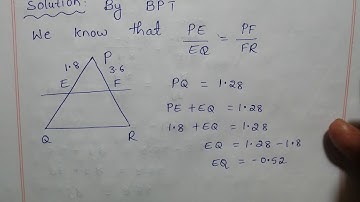 Solution: By BPT
We know that PE/EQ = PF/FR
P
1.8 3.6
E F
Q R
PQ = 1.28
PE + EQ = 1.28
1.8 + EQ = 1.28
EQ = 1.28 - 1.8
EQ = -0.52